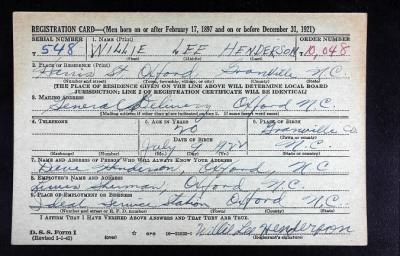 REGISTRATION CARD—(Men born on or after February 17, 1897 and on or before December 31, 1921)
SERIAL NUMBER 1. NAME (Print) ORDER NUMBER
T 548 WILLIE LEE HENDERSON 10,048
(First) (Middle) (Last)
2. PLACE OF RESIDENCE (Print)
St. Oxford, Granville N.C.
(Number and street) (Town, township, village, or city) (County) (State)
[THE PLACE OF RESIDENCE GIVEN ON THE LINE ABOVE WILL DETERMINE LOCAL BOARD
JURISDICTION; LINE 2 OF REGISTRATION CERTIFICATE WILL BE IDENTICAL]
3. MAILING ADDRESS
General Delivery Oxford N.C.
[Mailing address if other than place indicated on line 2. If same insert word same]
4. TELEPHONE 5. AGE IN YEARS 6. PLACE OF BIRTH
20 Granville Co.
DATE OF BIRTH
July N.C.
(Exchange) (Number) (Mo.) (Day) (Yr.) (State or country)
7. NAME AND ADDRESS OF PERSON WHO WILL ALWAYS KNOW YOUR ADDRESS
Henderson, Oxford, N.C.
8. EMPLOYER'S NAME AND ADDRESS
Sherman, Oxford, N.C.
9. PLACE OF EMPLOYMENT OR BUSINESS
Ideal Service Station Oxford N.C.
(Number and street or R. F. D. number) (Town) (County) (State)
I AFFIRM THAT I HAVE VERIFIED ABOVE ANSWERS AND THAT THEY ARE TRUE.
D. S. S. Form 1
(Revised 1-1-42) (over) Willie Lee Henderson
(Registrant's signature)